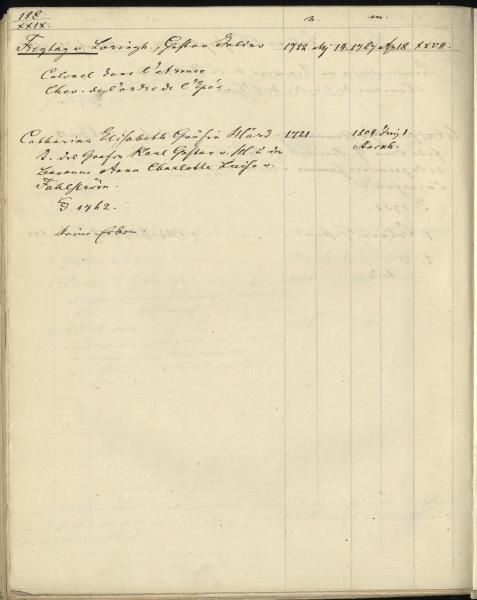 188
XXIX.
n. m.
Freytag v. Loringh, Gustav Julius 1722 May 19. 1787 Apr 18 XXVII.
Colonel dans l'armée
Chev. de l'ordre de l'Epée
Catharina Elisabeth Gräfin Hård 1721 1809 Juny 1
T. des Grafen Karl Gustav v. H u der Stockh.
Baronne Anna Charlotte Luise v.
Fahlström.
1762.
Keine Erben